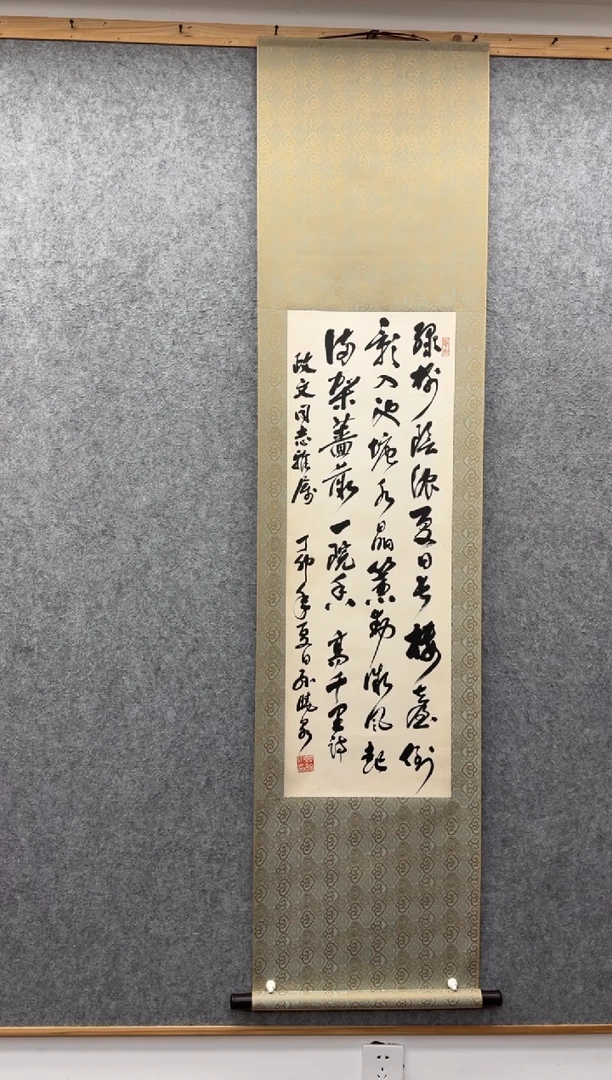 綠樹陰濃夏日長樓臺倒
影入池塘水晶簾動微風起
滿架薔薇一院香 高千里詩
政文同志雅屬 丁卯年夏日孫曉泉